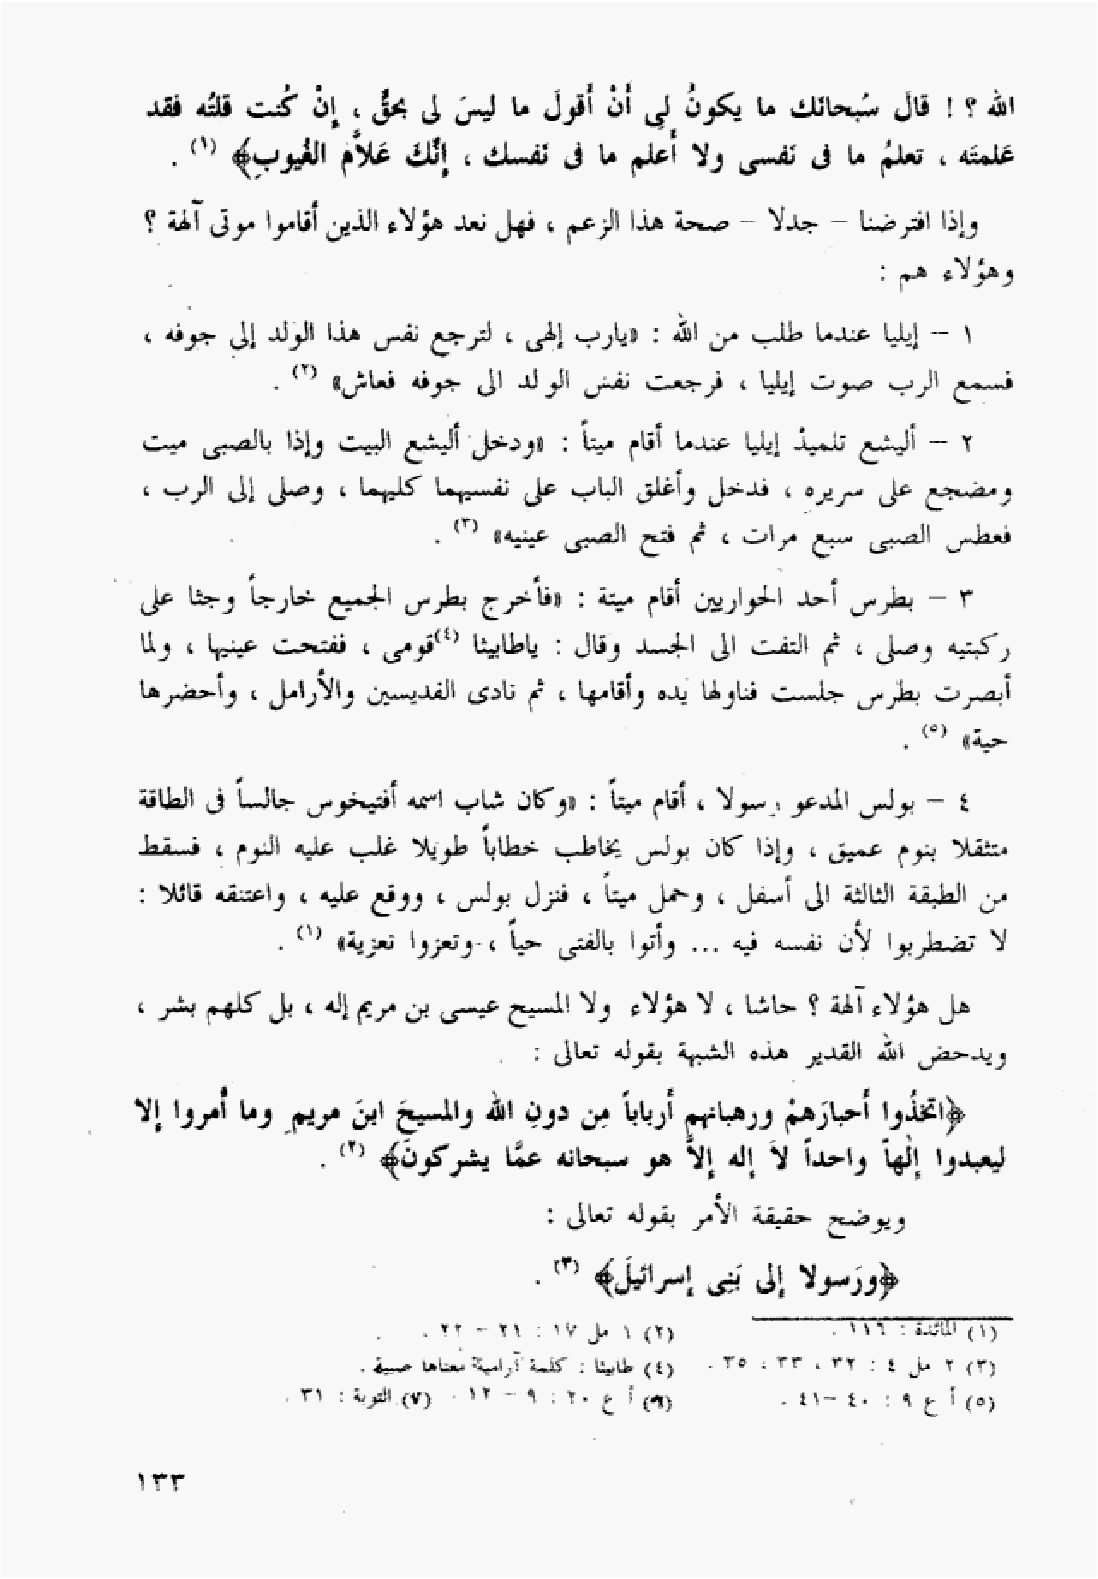 الله ؟ ! قالَ سُبحانك ما يكونُ لِى أَنْ أَقولَ ما ليسَ لى بحقٍّ ، إِنْ كُنت قلتُه فقد
عَلمتَه ، تعلمُ ما فى نَفسى ولا أَعلم ما فى نَفسك ، إنَّكَ عَلاَّم الغُيوبِ﴾ (١) .
وإذا افترضنا – جدلا – صحة هذا الزعم ، فهل نعد هؤلاء الذين أقاموا موتى آلهة ؟
وهؤلاء هم :
١ – إيليا عندما طلب من الله : «يارب إلهى ، لترجع نفس هذا الولد إلى جوفه ،
فسمع الرب صوت إيليا ، فرجعت نفس الولد الى جوفه فعاش» (٢) .
٢ – أليشع تلميذ إيليا عندما أقام ميتاً : «ودخل أليشع البيت وإذا بالصبى ميت
ومضجع على سريره ، فدخل وأغلق الباب على نفسيهما كليهما ، وصلى إلى الرب ،
فعطس الصبى سبع مرات ، ثم فتح الصبى عينيه» (٣) .
٣ – بطرس أحد الحواريين أقام ميتة : «فأخرج بطرس الجميع خارجاً وجثا على
ركبتيه وصلى ، ثم التفت الى الجسد وقال : ياطابيثا (٤) قومى ، ففتحت عينيها ، ولما
أبصرت بطرس جلست فناولها يده وأقامها ، ثم نادى القديسين والأرامل ، وأحضرها
حية» (٥) .
٤ – بولس المدعو رسولا ، أقام ميتاً : «وكان شاب اسمه أفتيخوس جالساً فى الطاقة
متثقلا بنوم عميق ، وإذا كان بولس يخاطب خطاباً طويلا غلب عليه النوم ، فسقط
من الطبقة الثالثة الى أسفل ، وحمل ميتاً ، فنزل بولس ، ووقع عليه ، واعتنقه قائلا :
لا تضطربوا لأن نفسه فيه ... وأتوا بالفتى حياً ، وتعزوا تعزية» (١) .
هل هؤلاء آلهة ؟ حاشا ، لا هؤلاء ولا المسيح عيسى بن مريم إله ، بل كلهم بشر ،
ويدحض الله القدير هذه الشبهة بقوله تعالى :
﴿اتخَذُوا أَحبارَهمْ ورهبانهم أَرباباً مِن دونِ الله والمسيحَ ابنَ مريمِ وما أُمروا إلا
ليعبدوا إلٰهاً واحداً لاَ إله إلاَّ هو سبحانه عمَّا يشركونَ﴾ (٢) .
ويوضح حقيقة الأمر بقوله تعالى :
﴿ورَسولا إلى بَنِى إسرائيلَ﴾ (٣) .
(١) المائدة : ١١٦ . (٢) ١ مل ١٧ : ٢١ – ٢٢ .
(٣) ٢ مل ٤ : ٣٢ ، ٣٣ ، ٣٥ . (٤) طابيثا : كلمة آرامية معناها صبية .
(٥) أ ع ٩ : ٤٠ –٤١ . (٦) أ ع ٢٠ : ٩ – ١٢ . (٧) التوبة : ٣١ .
١٣٣